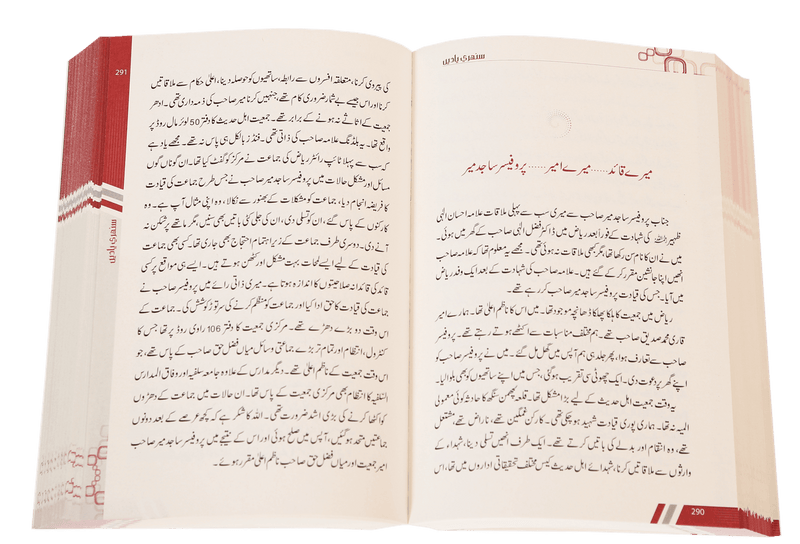 سنہری یادیں
میرے قائد......میرے امیر...... پروفیسر ساجد میر
جناب پروفیسر ساجد میر صاحب سے میری سب سے پہلی ملاقات علامہ احسان الٰہی
ظہیر رحمہ اللہ کی شہادت کے فوراً بعد ریاض میں ڈاکٹر فضل الٰہی صاحب کے گھر میں ہوئی۔
میں نے ان کا نام سن رکھا تھا، مگر کبھی ملاقات نہ ہوئی تھی۔ مجھے یہ معلوم تھا کہ علامہ صاحب
انھیں اپنا جانشین مقرر کر کے گئے ہیں۔ علامہ صاحب کی شہادت کے بعد ایک وفد ریاض
میں آیا۔ جس کی قیادت پروفیسر ساجد میر صاحب کر رہے تھے۔
ریاض میں جمعیت کا ہلکا پھلکا ڈھانچہ موجود تھا۔ میں اس کا ناظم اعلیٰ تھا۔ ہمارے امیر
قاری محمد صدیق صاحب تھے۔ ہم مختلف مناسبات سے اکٹھے ہوتے رہتے تھے۔ پروفیسر
صاحب سے تعارف ہوا، پھر جلد ہی ہم آپس میں گھل مل گئے۔ میں نے پروفیسر صاحب کو
اپنے گھر پر دعوت دی۔ ایک چھوٹی سی تقریب ہوگئی، جس میں اپنے ساتھیوں کو بھی بلوا لیا۔
یہ وقت جمعیت اہل حدیث کے لیے بڑا مشکل تھا۔ قلعہ لچھمن سنگھ کا حادثہ کوئی معمولی
المیہ نہ تھا۔ ہماری پوری قیادت شہید ہو چکی تھی۔ کارکن غمگین تھے، ناراض تھے، مشتعل
تھے، وہ انتقام اور بدلے کی باتیں کرتے تھے۔ ایک طرف انھیں تسلی دینا، شہداء کے
وارثوں سے ملاقاتیں کرنا، شہدائے اہل حدیث کیس مختلف تحقیقاتی اداروں میں تھا، اس
290
291
سنہری یادیں
کی پیروی کرنا، متعلقہ افسروں سے رابطہ، ساتھیوں کو حوصلہ دینا، اعلیٰ حکام سے ملاقاتیں
کرنا اور اس جیسے بے شمار ضروری کام تھے، جنہیں کرنا میر صاحب کی ذمہ داری تھی۔ ادھر
جمعیت کے اثاثے نہ ہونے کے برابر تھے۔ جمعیت اہل حدیث کا دفتر 50 لوئر مال روڈ پر
واقع تھا۔ یہ بلڈنگ علامہ صاحب کی ذاتی تھی۔ فنڈز بالکل ہی پاس نہ تھے۔ مجھے یاد ہے
کہ سب سے پہلا ٹائپ رائٹر ریاض کی جماعت نے مرکز کو گفٹ کیا تھا۔ ان گوناں گوں
مسائل اور مشکل حالات میں پروفیسر ساجد میر صاحب نے جس طرح جماعت کی قیادت
کا فریضہ انجام دیا، جماعت کو مشکلات کے بھنور سے نکالا، وہ اپنی مثال آپ ہے۔ وہ
کارکنوں کے پاس گئے، ان کو تسلی دی، ان کی جلی کٹی باتیں بھی سنیں، مگر ماتھے پر شکن نہ
آنے دی۔ دوسری طرف جماعت کے زیر اہتمام احتجاج بھی جاری تھا۔ کسی بھی جماعت
کی قیادت کے لیے ایسے لمحات بہت مشکل اور کٹھن ہوتے ہیں۔ ایسے ہی مواقع پر کسی
قائد کی قائدانہ صلاحیتوں کا اندازہ ہوتا ہے۔ میری ذاتی رائے میں پروفیسر صاحب نے
جماعت کی قیادت کا حق ادا کیا اور جماعت کو منظم کرنے کی سر توڑ کوشش کی۔ جماعت کے
اس وقت دو بڑے دھڑے تھے۔ مرکزی جمعیت کا دفتر 106 راوی روڈ پر تھا جس کا
کنٹرول، انتظام اور تمام تر بڑے جماعتی وسائل میاں فضل حق صاحب کے پاس تھے، جو
اس وقت جمعیت کے ناظم اعلیٰ تھے۔ دیگر مدارس کے علاوہ جامعہ سلفیہ اور وفاق المدارس
السلفیہ کا انتظام بھی مرکزی جمعیت کے پاس تھا۔ ان حالات میں جماعت کے دھڑوں
کو اکٹھا کرنے کی بڑی اشد ضرورت تھی۔ اللہ کا شکر ہے کہ کچھ عرصے کے بعد دونوں
جماعتیں متحد ہوگئیں، آپس میں صلح ہوئی اور اس کے نتیجے میں پروفیسر ساجد میر صاحب
امیر جمعیت اور میاں فضل حق صاحب ناظم اعلیٰ مقرر ہوئے۔